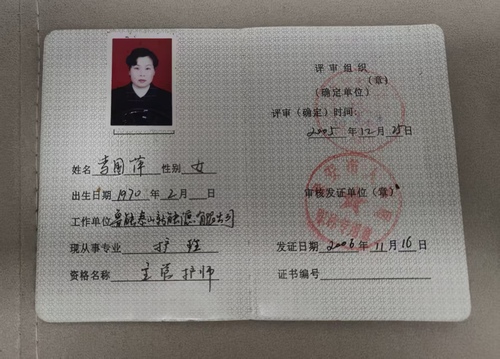 姓名 性别 女
出生日期 1970 年 2 月
工作单位 鲁能泰山 有限公司
现从事专业 护理
资格名称 主管护师
评审组织
(章)
(确定单位)
评审(确定)时间:
2005 年 12 月 25 日
审核发证单位(章)
发证日期 2006 年 11 月 16 日
证书编号